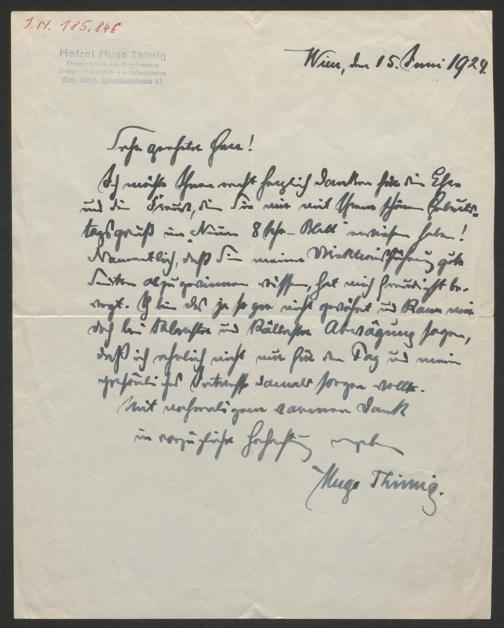 J.N. 185.846
Hofrat Hugo Thimig
Wien, XVIII., Gymnasiumstrasse 47.
Wien, den 15. Juni 1924
Sehr geehrter Herr!
Ich möchte Ihnen recht herzlich danken für die Ehre
und die Freude, die Sie mir mit Ihrem schönen Geburts-
tagsgruß im "Neuen 8 Uhr-Blatt" erwiesen haben!
Namentlich, daß Sie meiner Direktionsführung gute
Seiten abzugewinnen wissen, hat mich freudigst be-
wegt. Ich bin das ja so gar nicht gewöhnt und kann mir
doch bei klarster und kältester Abwägung sagen,
daß ich ehrlich nicht nur für den Tag und mein
persönliches Interesse damals sorgen wollte.
Mit nochmaligem warmen Dank
in vorzüglicher Hochachtung ergeben
Hugo Thimig.